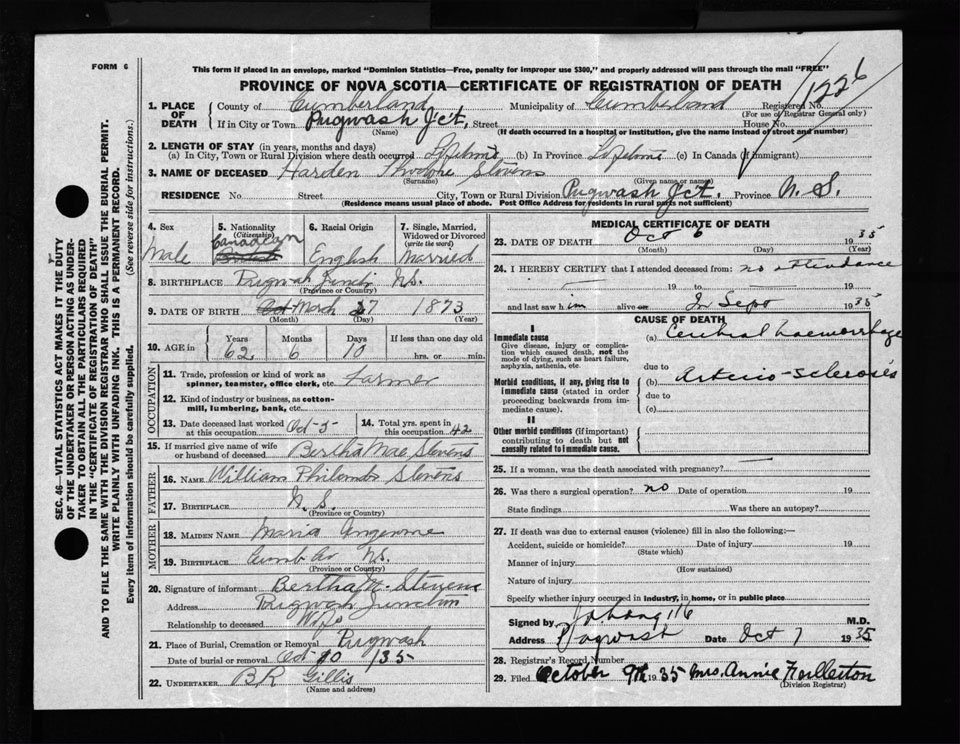 FORM 6
This form if placed in an envelope, marked "Dominion Statistics—Free, penalty for improper use $300," and properly addressed will pass through the mail "FREE"
PROVINCE OF NOVA SCOTIA—CERTIFICATE OF REGISTRATION OF DEATH
1226
1. PLACE OF DEATH County of Cumberland Municipality of Cumberland Registered No.
(For use of Registrar General only)
If in City or Town Pugwash Jct. Street House No.
(Name) (If death occurred in a hospital or institution, give the name instead of street and number)
2. LENGTH OF STAY (in years, months and days)
(a) In City, Town or Rural Division where death occurred Lifetime (b) In Province Lifetime (c) In Canada (if immigrant)
3. NAME OF DECEASED Harden Theodore Stevens
(Surname) (Given name or names)
RESIDENCE No. Street City, Town or Rural Division Pugwash Jct. Province N. S.
(Residence means usual place of abode. Post Office Address for residents in rural parts not sufficient)
4. Sex Male
5. Nationality (Citizenship) Canadian
6. Racial Origin English
7. Single, Married, Widowed or Divorced (write the word) Married
8. BIRTHPLACE Pugwash Junct. NS.
(Province or Country)
9. DATE OF BIRTH March 27 1873
(Month) (Day) (Year)
10. AGE in Years 62 Months 6 Days 10 If less than one day old hrs. or min.
OCCUPATION
11. Trade, profession or kind of work as spinner, teamster, office clerk, etc. Farmer
12. Kind of industry or business, as cotton-mill, lumbering, bank, etc.
13. Date deceased last worked at this occupation Oct-5- 14. Total yrs. spent in this occupation 42
15. If married give name of wife or husband of deceased Bertha Mae Stevens
FATHER
16. NAME William Stevens
17. BIRTHPLACE N. S.
(Province or Country)
MOTHER
18. MAIDEN NAME Maria
19. BIRTHPLACE Cumb Co NS.
(Province or Country)
20. Signature of informant Bertha M. Stevens
Address Pugwash Junction
Relationship to deceased Wife
21. Place of Burial, Cremation or Removal Pugwash
Date of burial or removal Oct 10 /35
22. UNDERTAKER B R Gillis
(Name and address)
MEDICAL CERTIFICATE OF DEATH
23. DATE OF DEATH Oct 6 1935
(Month) (Day) (Year)
24. I HEREBY CERTIFY that I attended deceased from: no attendance
19 to 19
and last saw him alive on In Sept 1935
CAUSE OF DEATH
I
Immediate cause
Give disease, injury or complication which caused death, not the mode of dying, such as heart failure, asphyxia, asthenia, etc.
(a) Cerebral haemorrhage
due to
Morbid conditions, if any, giving rise to immediate cause (stated in order proceeding backwards from immediate cause).
(b) Arterio-sclerosis
due to
(c)
II
Other morbid conditions (if important) contributing to death but not causally related to immediate cause.
25. If a woman, was the death associated with pregnancy?
26. Was there a surgical operation? no Date of operation 19
State findings Was there an autopsy?
27. If death was due to external causes (violence) fill in also the following:—
Accident, suicide or homicide? Date of injury 19
(State which)
Manner of injury
(How sustained)
Nature of injury
Specify whether injury occurred in industry, in home, or in public place
Signed by M.D.
Address Pugwash Date Oct 7 1935
28. Registrar's Record Number
29. Filed October 9th 1935 Mrs. Annie Fullerton
(Division Registrar)
SEC. 46—VITAL STATISTICS ACT MAKES IT THE DUTY
OF THE UNDERTAKER OR PERSON ACTING AS UNDER-
TAKER TO OBTAIN ALL THE PARTICULARS REQUIRED
IN THE "CERTIFICATE OF REGISTRATION OF DEATH"
AND TO FILE THE SAME WITH THE DIVISION REGISTRAR WHO SHALL ISSUE THE BURIAL PERMIT.
WRITE PLAINLY WITH UNFADING INK. THIS IS A PERMANENT RECORD.
Every item of information should be carefully supplied. (See reverse side for instructions.)